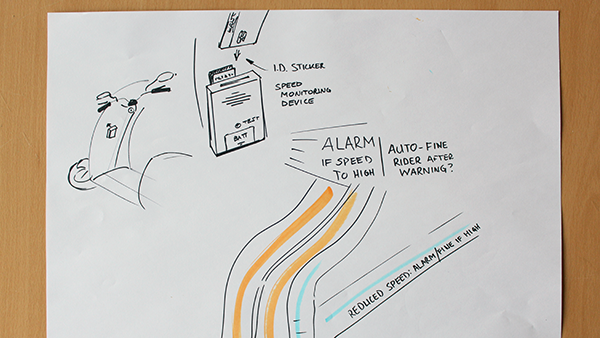 I.D. STICKER
SPEED
MONITORING
DEVICE
TEST
BATT
ALARM
IF SPEED
TO HIGH
AUTO-FINE
RIDER AFTER
WARNING?
REDUCED SPEED: ALARM/FINE IF HIGH